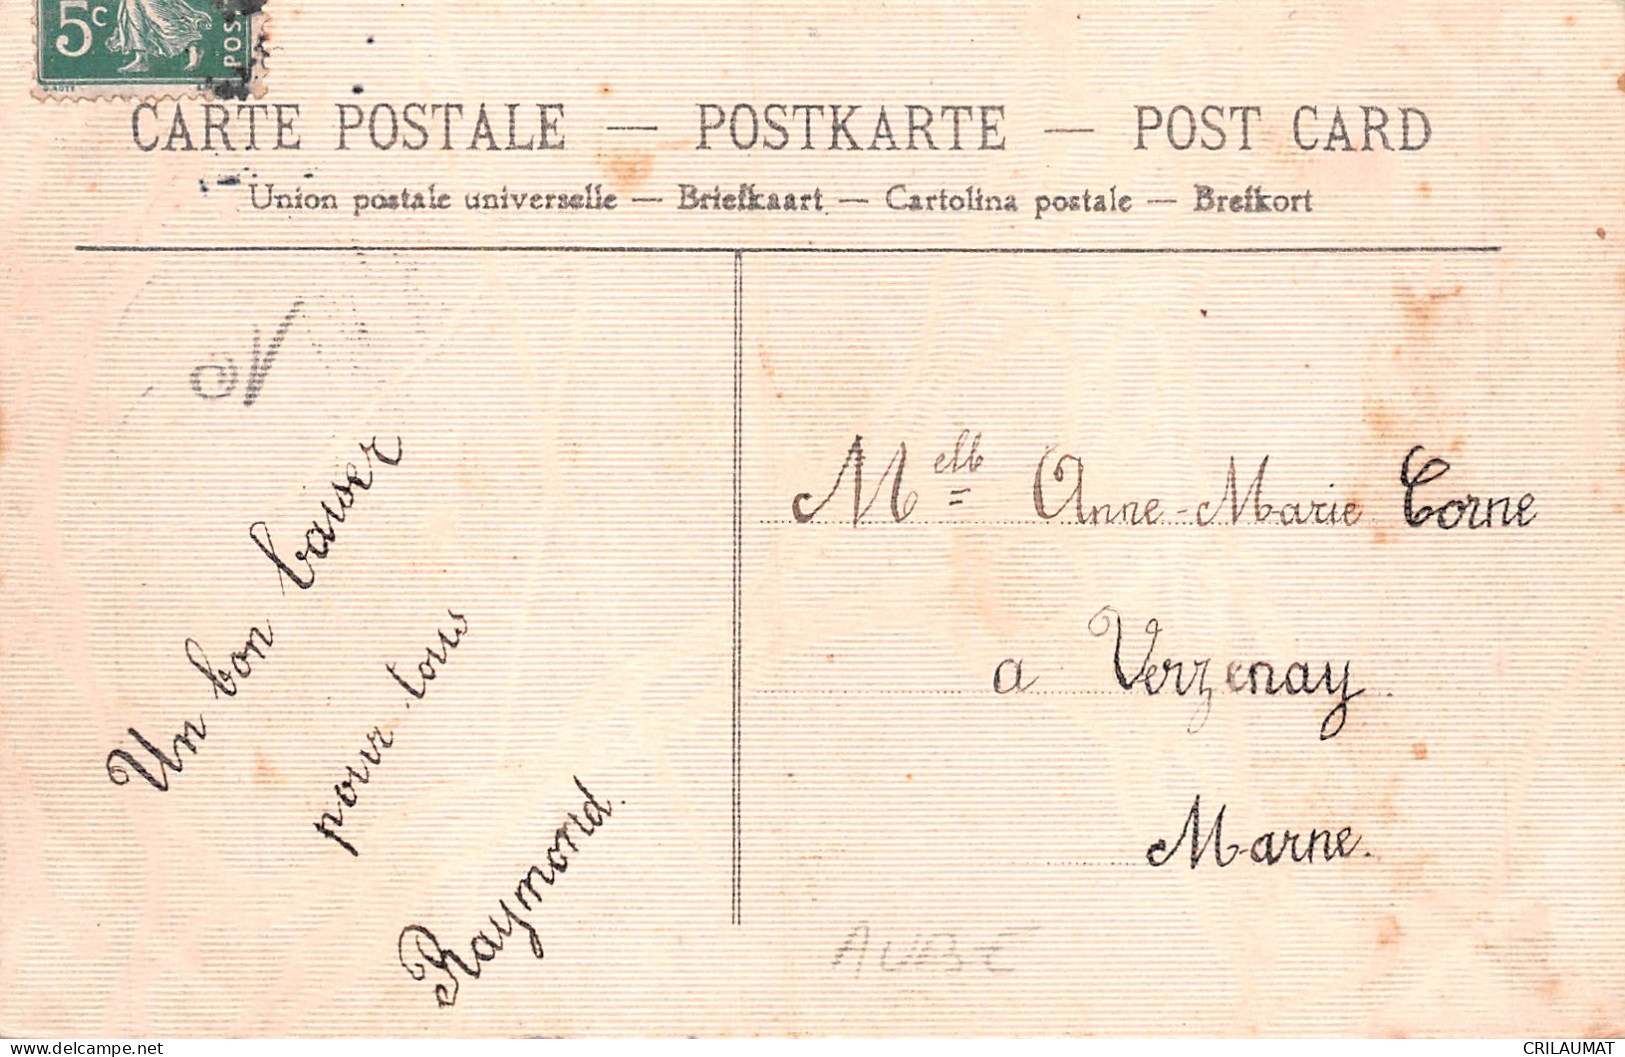 5c
POS
CARTE POSTALE — POSTKARTE — POST CARD
Union postale universelle — Briefkaart — Cartolina postale — Brefkort
Un bon baiser
pour tous
Raymond.
Melle Anne-Marie Corne
a Verzenay
Marne.
AUBE
delcampe.net
CRILAUMAT